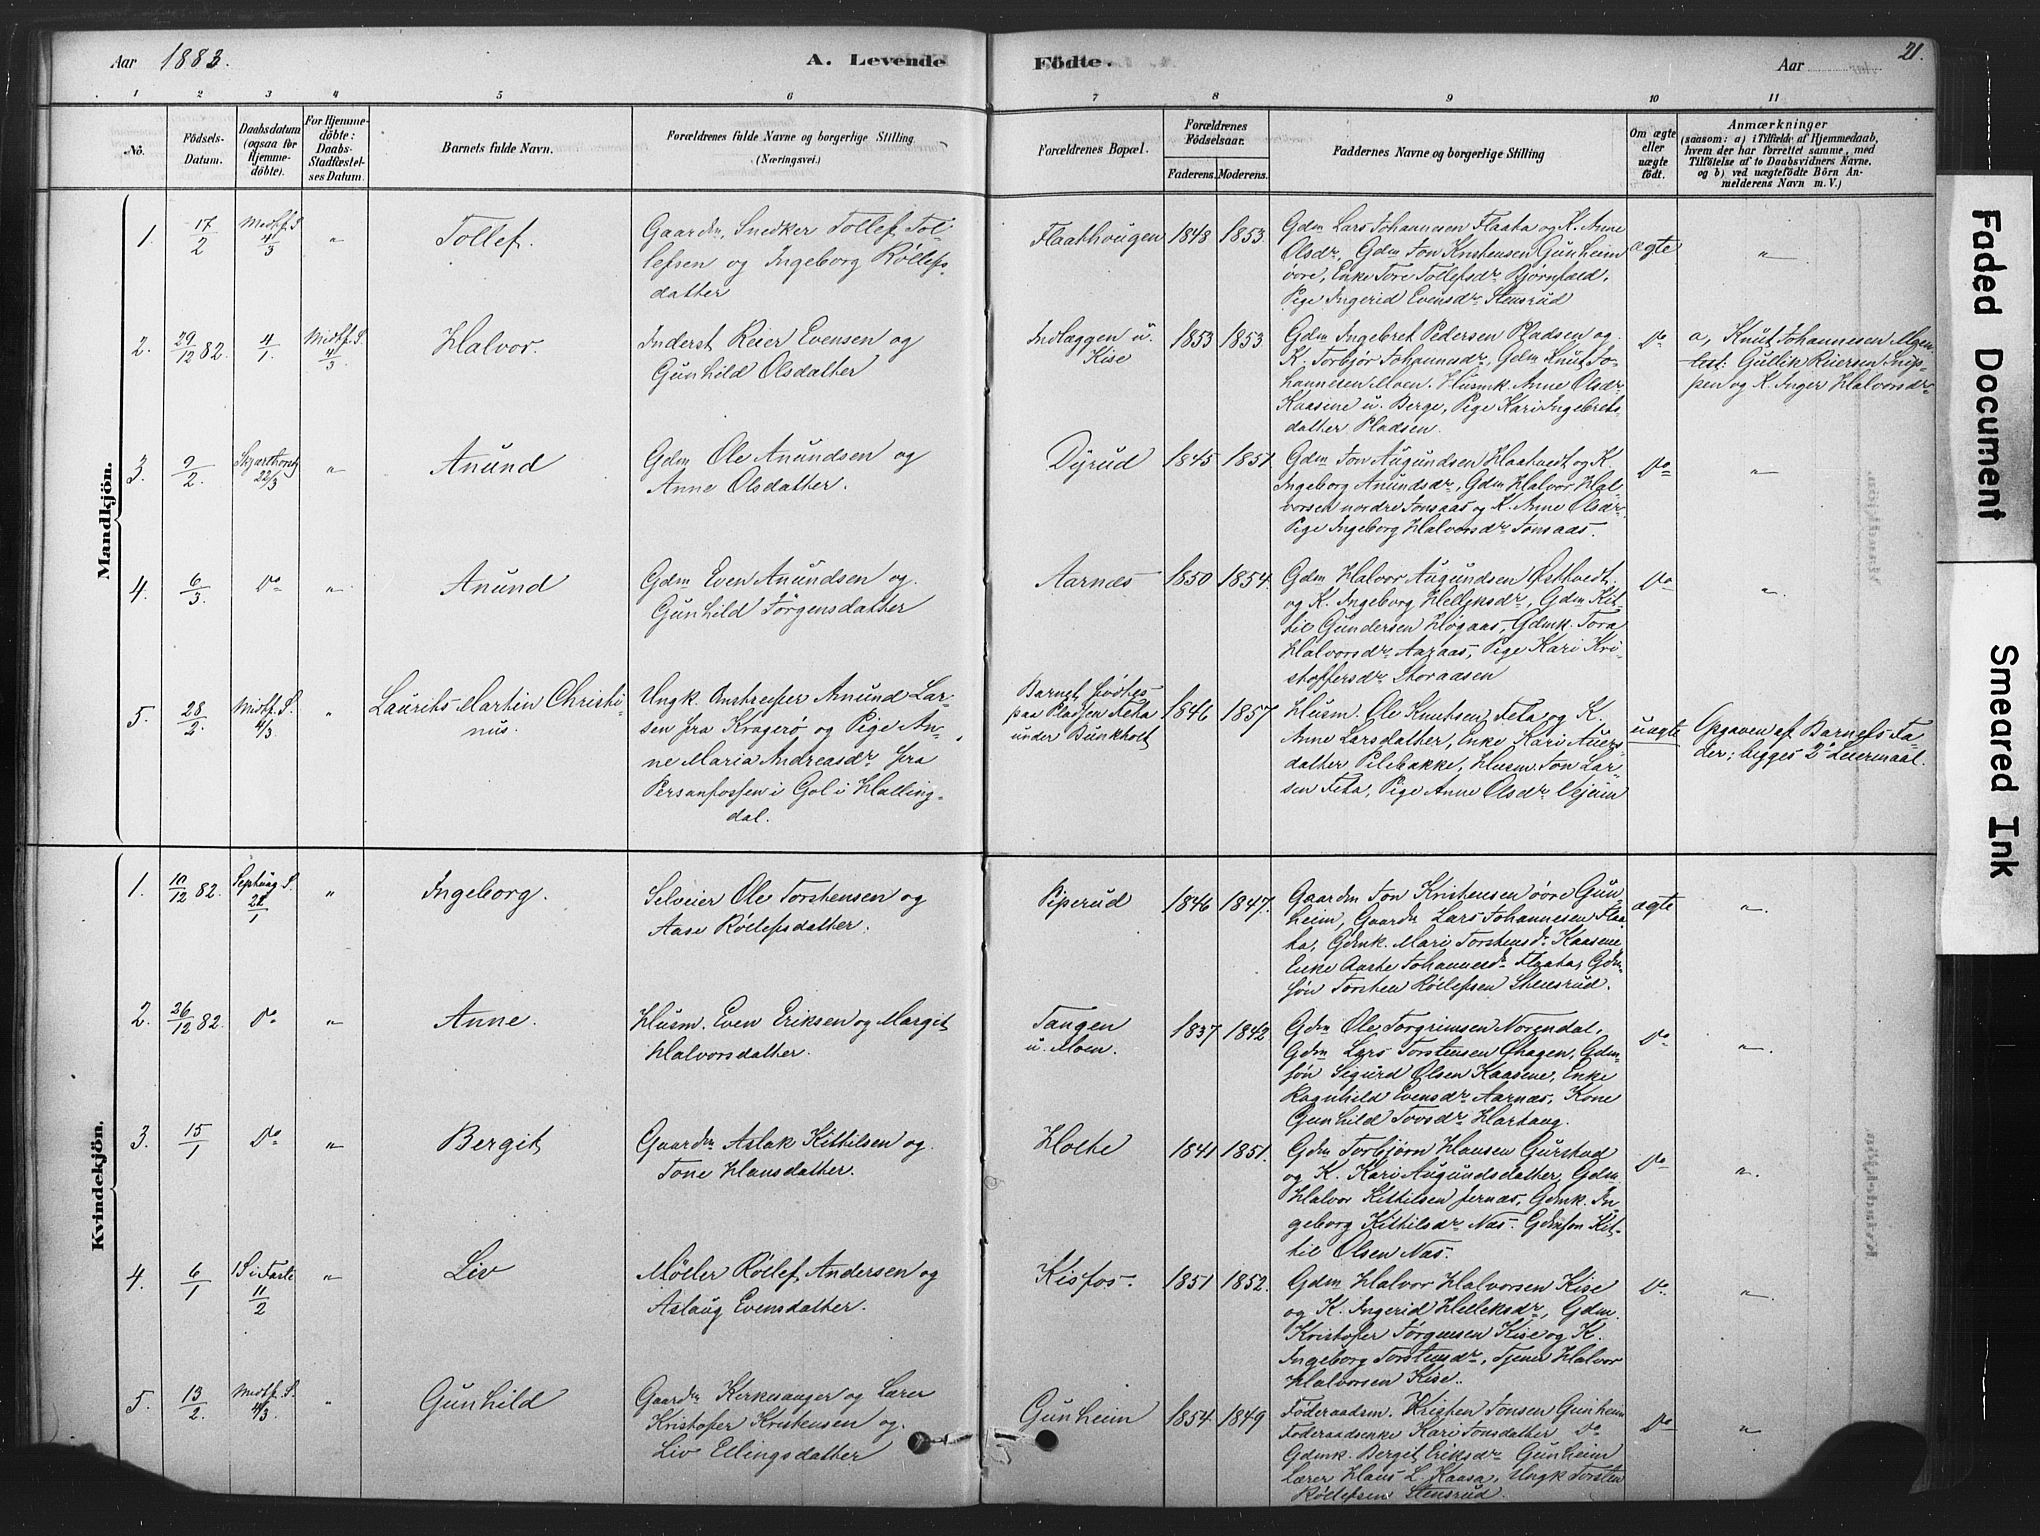 Aar 1883.
A. Levende Födte.
Aar
21.
1 2 3 4 5 6 7 8 9 10 11
No.
Födsels-
Datum.
Daabsdatum
(ogsaa for
Hjemme-
döbte).
For Hjemme-
döbte:
Daabs-
Stadfæstel-
ses Datum.
Barnets fulde Navn.
Forældrenes fulde Navne og borgerlige Stilling
(Næringsvei.)
Forældrenes Bopæl.
Forældrenes
Födselsaar.
Faderens. Moderens.
Faddernes Navne og borgerlige Stilling
Om ægte
eller
uægte
födt.
Anmærkninger
(saasom: a) i Tilfælde af Hjemmedaab,
hvem der har forrettet samme, med
Tilföielse af to Daabsvidners Navne,
og b) ved uægtefödte Börn An-
melderens Navn m. V.)
Mandkjön.
1.
17/2
Midtf. S.
4/3
"
Tollef.
Gaardm. Snedker Tollef Tol-
lefsen og Ingeborg Röllefs-
datter
Flaathougen
1848 1853
Gdm Lars Johannesen Flaata og K. Anne
Olsdr, Gdm Jon Kristensen Gunheim
övre, Enke Tore Tollefsdr Björnfæld,
Pige Ingerid Evensdr Stensrud
ægte
"
2.
29/12 82.
4/1.
Midtf. S.
4/3
Halvor.
Inderst Reier Evensen og
Gunhild Olsdatter
Indlæggen u.
Kise
1853 1853
Gdm Ingebret Pedersen Pladsen og
K. Torbjör Johannesdr, Gdm Knut Jo-
hannesen Moen. Husmk. Anne Olsdr
Kaasine u. Berge, Pige Kari Ingebrets-
datter Pladsen.
Do
a, Knut Johannesen Moen
test: Gullik Reiersen Snip-
pen og K. Inger Halvorsdr
3.
9/2.
22/3
"
Anund
Gdm Ole Anundsen og
Anne Olsdatter.
Dyrud
1845 1851
Gdm Jon Augundsen Haatvedt og K.
Ingeborg Anundsdr, Gdm Halvor Hal-
vorsen nordre Jonsaas og K. Anne Olsdr
Pige Ingeborg Halvorsdr Jonsaas.
Do
"
4.
6/3.
Do
"
Anund
Gdm Even Anundsen og
Gunhild Jörgensdatter
Aarnæs
1850 1854.
Gdm Halvor Augundsen Østtvedt
og K. Ingeborg Helleksdr, Gdm Kit-
til Gundersen Høgaas, Gdmk. Tora
Halvorsdr Aasaas, Pige Kari Kri-
stoffersdr Storaasen
Do
"
5.
28/2.
Midtf. S.
4/3.
"
Laurits Martin Christi-
nus.
Ungk. Anund Lar-
sen fra Kragerö og Pige An-
ne Maria Andreasdr fra
Persanfossen i Gol i Halling-
dal.
Barnet födtes
paa Pladsen Feta
under Bunkholt
1846 1857
Husm. Ole Knutsen Feta og K.
Anne Larsdatter, Enke Kari Auers-
datter Pilebakke, Husm Jon Lar-
sen Feta, Pige Anne Olsdr Vejeim
uægte
Opgaven af Barnets Fa-
der; begges 2. Leiermaal.
Kvindekjön.
1.
10/12 82.
Septuag S.
21/1
"
Ingeborg.
Selveier Ole Torstensen og
Aase Röllefsdatter.
Piperud
1846 1847.
Gaardm Jon Kristensen övre Gun-
heim, Gaardm Lars Johannesen Flaa-
ta, Gdmk. Mari Torstensdr Kaasene,
Enke Aaste Johannesdr Flaata, Gdm-
sön Torsten Röllefsen Stensrud.
ægte
"
2.
26/12 82.
Do
"
Anne.
Husm. Even Eriksen og Margit
Halvorsdatter.
Tangen
u. Moen.
1837 1842
Gdm Ole Torgrimsen Norendal,
Gdm Lars Torstensen Øhagen, Gdm-
sön Sigurd Olsen Kaasene, Enke
Ragnhild Evensdr Aarnæs, Kone
Gunhild Tovsdr Hartaug.
Do
"
3.
15/1
Do
"
Bergit
Gaardm Aslak Kittilsen og
Tone Hansdatter.
Holte
1841 1851.
Gdm Torbjørn Hansen Gurstad
og K. Kari Augundsdatter, Gdm
Halvor Kittilsen Jernæs, Gdmk. In-
geborg Kittilsdr Næs. Gdmsön Kit-
til Olsen Næs.
Do
"
4.
6/1
1 S. i Faste
11/2
"
Liv
Möller Röllef Andersen og
Aslaug Evensdatter.
Kisfos.
1851 1852.
Gdm Halvor Halvorsen Kise
og K. Ingerid Helleksdr, Gdm.
Kristofer Jörgensen Kise og K.
Ingeborg Torstensdr, Tjener Halvor
Halvorsen Kise.
Do
"
5.
13/2.
Midtf. S.
4/3.
"
Gunhild
Gaardm Kirkesanger og Lærer
Kristofer Kristensen og
Liv Ellingsdatter
Gunheim
1854 1849
Föderaadsm. Kristen Jonsen Gunheim
Föderaadsenke Kari Jonsdatter Do
Gdmk. Bergit Eriksdr Gunheim
Lærer Hans L. Kaasa, Ungk Torsten
Röllefsen Stensrud.
Do
"
Faded Document
Smeared Ink